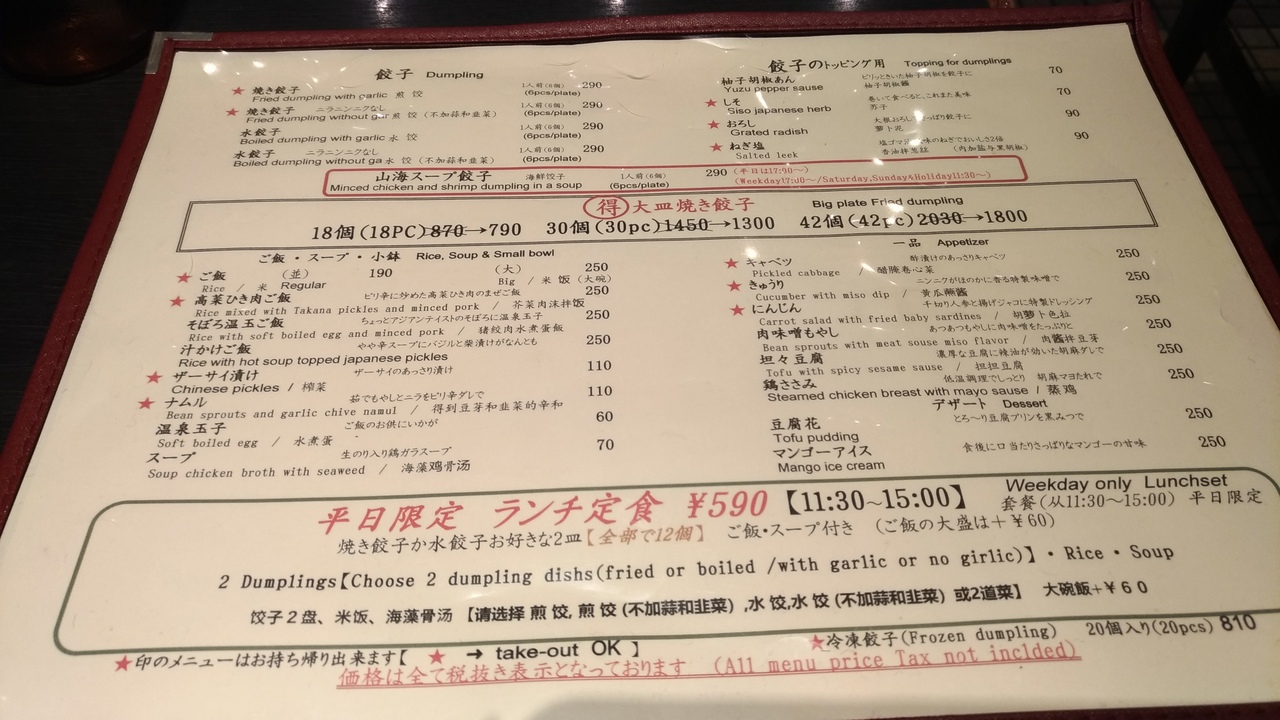 餃子 Dumpling
★ 焼き餃子 1人前(6個) 290
Fried dumpling with garlic 煎 饺 (6pcs/plate)
★ 焼き餃子 ニラニンニクなし 1人前(6個) 290
Fried dumpling without gar 煎 饺 (不加蒜和韭菜) (6pcs/plate)
水餃子 1人前(6個) 290
Boiled dumpling with garlic 水 饺 (6pcs/plate)
水餃子 ニラニンニクなし 1人前(6個) 290
Boiled dumpling without ga 水 饺 (不加蒜和韭菜) (6pcs/plate)
餃子のトッピング用 Topping for dumplings
柚子胡椒あん ピリッときいた柚子胡椒を餃子に 70
Yuzu pepper sause 柚子胡椒酱
★ しそ 巻いて食べると、これまた美味 70
Siso japanese herb 苏子
★ おろし 大根おろしたっぷり餃子に 90
Grated radish 萝卜泥
★ ねぎ塩 90
Salted leek 香油拌葱丝
山海スープ餃子 海鮮饺子 1人前(6個) 290 (平日は17:00〜)
Minced chicken and shrimp dumpling in a soup (6pcs/plate) (Weekday17:00〜/Saturday,Sunday&Holiday11:30〜)
得 大皿焼き餃子 Big plate Fried dumpling
18個(18PC)870→790 30個(30pc)1450→1300 42個(42pc)2030→1800
ご飯・スープ・小鉢 Rice, Soup & Small bowl
★ ご飯 (並) 190 (大) 250
Rice / 米 Regular Big / 米 饭 (大碗)
★ 高菜ひき肉ご飯 ピリ辛に炒めた高菜ひき肉のまぜご飯 250
Rice mixed with Takana pickles and minced pork / 芥菜肉沫拌饭
そぼろ温玉ご飯 ちょっとアジアンテイストのそぼろに温泉玉子 250
Rice with soft boiled egg and minced pork / 猪绞肉水煮蛋飯
汁かけご飯 やや辛スープにバジルと柴漬けがなんとも 250
Rice with hot soup topped japanese pickles
★ ザーサイ漬け ザーサイのあっさり漬け 110
Chinese pickles / 榨菜
★ ナムル 茹でもやしとニラをピリ辛ダレで 110
Bean sprouts and garlic chive namul / 得到豆芽和韭菜的辛和
温泉玉子 ご飯のお供にいかが 60
Soft boiled egg / 水煮蛋
スープ 生のり入り鶏ガラスープ 70
Soup chicken broth with seaweed / 海藻鸡骨汤
一品 Appetizer
★ キャベツ 酢漬けのあっさりキャベツ 250
Pickled cabbage / 醋腌卷心菜
★ きゅうり ニンニクがほのかに香る特製味噌で 250
Cucumber with miso dip / 黄瓜蘸酱
★ にんじん 千切り人参と揚げジャコに特製ドレッシング 250
Carrot salad with fried baby sardines / 胡萝卜色拉
肉味噌もやし あつあつもやしに肉味噌をたっぷりと 250
Bean sprouts with meat souse miso flavor / 肉酱拌豆芽
坦々豆腐 濃厚な豆腐に辣油が効いた胡麻ダレで 250
Tofu with spicy sesame sause / 担担豆腐
鶏ささみ 低温調理でしっとり 胡麻マヨだれで 250
Steamed chicken breast with mayo sause / 蒸 鸡
デザート Dessert
豆腐花 とろ〜り豆腐プリンを黒みつで 250
Tofu pudding
マンゴーアイス 食後に口当たりさっぱりなマンゴーの甘味 250
Mango ice cream
平日限定 ランチ定食 ¥590【11:30〜15:00】 Weekday only Lunchset
套餐(从11:30〜15:00) 平日限定
焼き餃子か水餃子お好きな2皿【全部で12個】 ご飯・スープ付き (ご飯の大盛は+¥60)
2 Dumplings【Choose 2 dumpling dishs(fried or boiled /with garlic or no girlic)】・Rice・Soup
饺子2盘、米饭、海藻骨汤 【请选择 煎 饺, 煎 饺 (不加蒜和韭菜) ,水 饺,水 饺 (不加蒜和韭菜) 或2道菜】 大碗飯+¥60
★印のメニューはお持ち帰り出来ます【 ★ → take-out OK 】
★冷凍餃子(Frozen dumpling) 20個入り(20pcs) 810
価格は全て税抜き表示となっております (All menu price Tax not inclded)